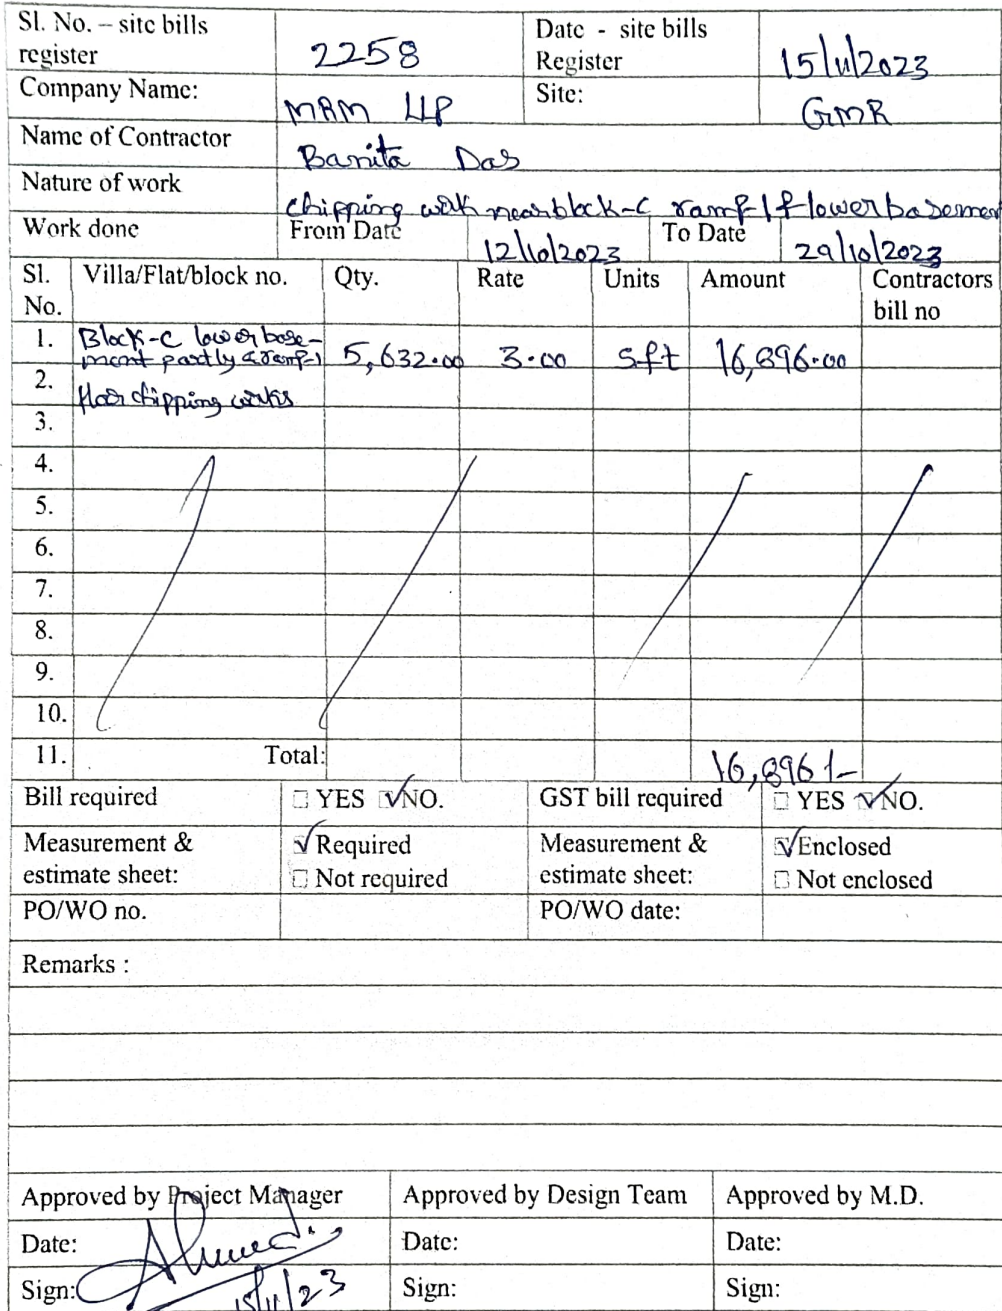 Sl. No. – site bills register 2258 Date - site bills Register 15/11/2023
Company Name: MRM LLP Site: GMR
Name of Contractor Banita Das
Nature of work chipping work near block-C ramp-1 & lower basement
Work done From Date 12/10/2023 To Date 29/10/2023
Sl. No. Villa/Flat/block no. Qty. Rate Units Amount Contractors bill no
1. Block-C lower base- 5,632.00 3.00 sft 16,896.00
ment partly & ramp-1
2. floor chipping works
3.
4.
5.
6.
7.
8.
9.
10.
11. Total: 16,896/-
Bill required YES NO. GST bill required YES NO.
Measurement & estimate sheet: Required Measurement & estimate sheet: Enclosed
Not required Not enclosed
PO/WO no. PO/WO date:
Remarks :
Approved by Project Manager Approved by Design Team Approved by M.D.
Date: Date: Date:
Sign: 15/11/23 Sign: Sign: